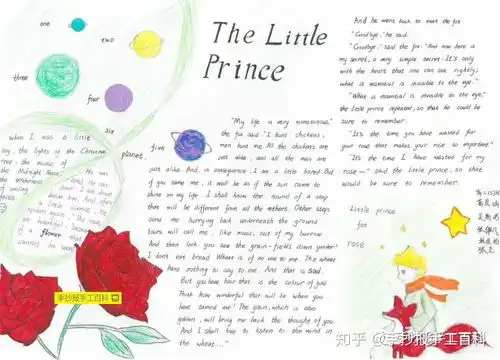 The Little
Prince
one
two
three
four
five
six
planet.
when I was a little
boy, the lights of the Christmas
tree, the music of
the Midnight Mass
of a flower that
cannot be
"My life is very monotonous,"
the fox said. "I hunt chickens;
men hunt me. All the chickens are
just alike, and all the men are
just alike. And, in consequence, I am a little bored. But
if you tame me, it will be as if the sun came to
shine on my life. I shall know the sound of a step
that will be different from all the others. Other steps
send me hurrying back underneath the ground.
Yours will call me, like music, out of my burrow.
And then look: you see the grain-fields down yonder?
I don't eat bread. Wheat is of no use to me. The wheat
have nothing to say to me. And that is sad.
But you have hair that is the colour of gold.
Think how wonderful that will be when you
have tamed me! The grain, which is also
golden, will bring me back the thought of you.
And I shall love to listen to the wind in
the wheat..."
And he went back to meet the fox.
"Goodbye," he said.
"Goodbye," said the fox. "And now here is
my secret, a very simple secret: It's only
with the heart that one can see rightly;
what is essential is invisible to the eye."
"What is essential is invisible to the eye,"
the little prince repeated, so that he could be
sure to remember.
"It's the time you have wasted for
your rose that makes your rose so important."
"It's the time I have wasted for my
rose—" said the little prince, so that he
would be sure to remember.
Little prince
for
rose
手抄报手工百科
知乎 @手抄报手工百科